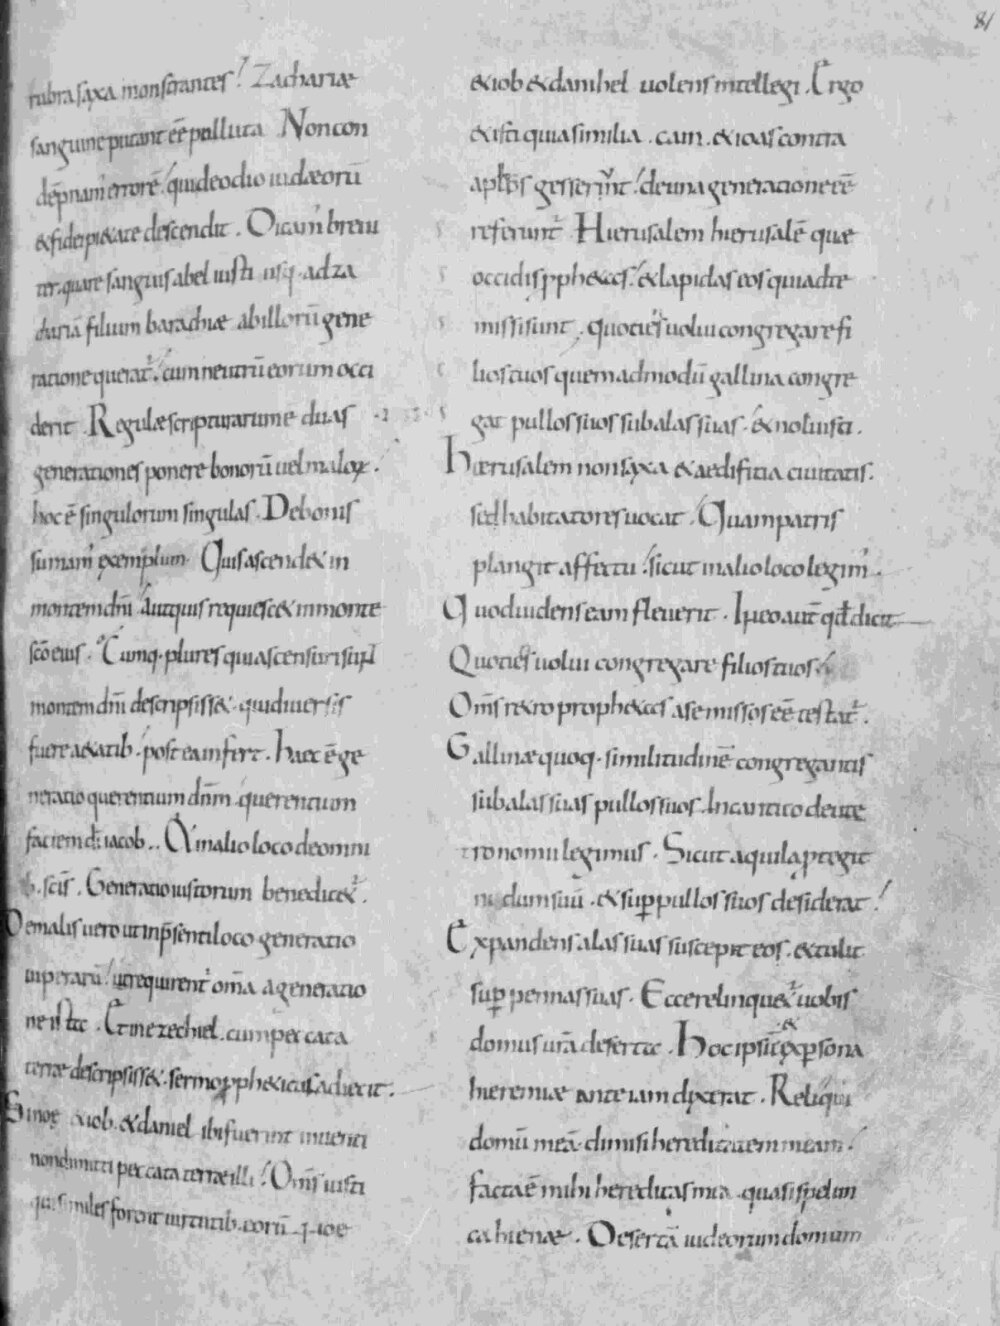 81
rubra saxa monstrantes! Zachariæ
sanguine putant eē polluta Non con
dēpnam' errorē. qui de odio iudæorū
& fidei pi&ate descendit. Dicam' breui
ter. quare sanguis abel iusti usq. ad za
chariā filium barachiæ ab illorū gene
ratione querat'. cum neutrū eorum occi
derit Regulæ scripturarum ē duas
generationes ponere bonorū uel maloꝝ.
hoc ē singulorum singulas. De bonis
sumam' exemplum Quis ascend& in
montem dn̄i Aut quis requiesc& in monte
sc̄o eius. Cumq. plures qui ascensuri sup̄
montem dn̄i descripsiss&. qui diuersis
fuere a&atib. postea infert. haec ē ge
neratio querentium dn̄m querentium
faciem dī iacob.. Et in alio loco de omni
b. sc̄is. Generatio iustorum benedic&'.
De malis uero ut in p̄senti loco generatio
uiperarū! ut requirent' om̄a a generatio
ne istac. Et in ezechiel. cum peccata
terræ descripsiss&. sermo proph&icus adiecit.
Si noe &iob. &daniel ibi fuerint inuenti
non dimitti peccata terræ illi! Om̄s iusti
qui similes forent uirtutib. eorū. noe
&iob &danihel uolens intellegi. Ergo
&isti quia similia. cain. &ioas contra
aplōs gesserunt! de una generatione eē
referunt' Hierusalem hierusalē quæ
occidis proph&as! &lapidas eos qui ad te
missi sunt. quoties uolui congregare fi
lios tuos quemadmodū gallina congre
gat pullos suos sub alas suas. & noluisti.
Hierusalem non saxa &aedificia ciuitatis.
sed habitatores uocat. Quam patris
plangit affectu. sicut in alio loco legim'.
Quod uidens eam fleuerit. In eo aut̄ qđ dicit
Quoties uolui congregare filios tuos
Om̄s retro proph&as a se missos eē testat'.
Gallinæ quoq. similitudinē congregantis
sub alas suas pullos suos. In cantico deute
ronomii legimus. Sicut aquila protegit
nidum suū. &sup̄ pullos suos desiderat!
Expandens alas suas suscepit eos. &tulit
sup̄ pennas suas. Ecce relinqu&' uobis
domus ur̄a deserta. Hoc ipsū & ex p̱sona
hieremiæ ante iam dixerat. Reliqui
domū meā dimisi heredi&atem meam!
facta ē mihi hereditas mea quasi spelun
ca hienæ. Desertā iudeorum domum